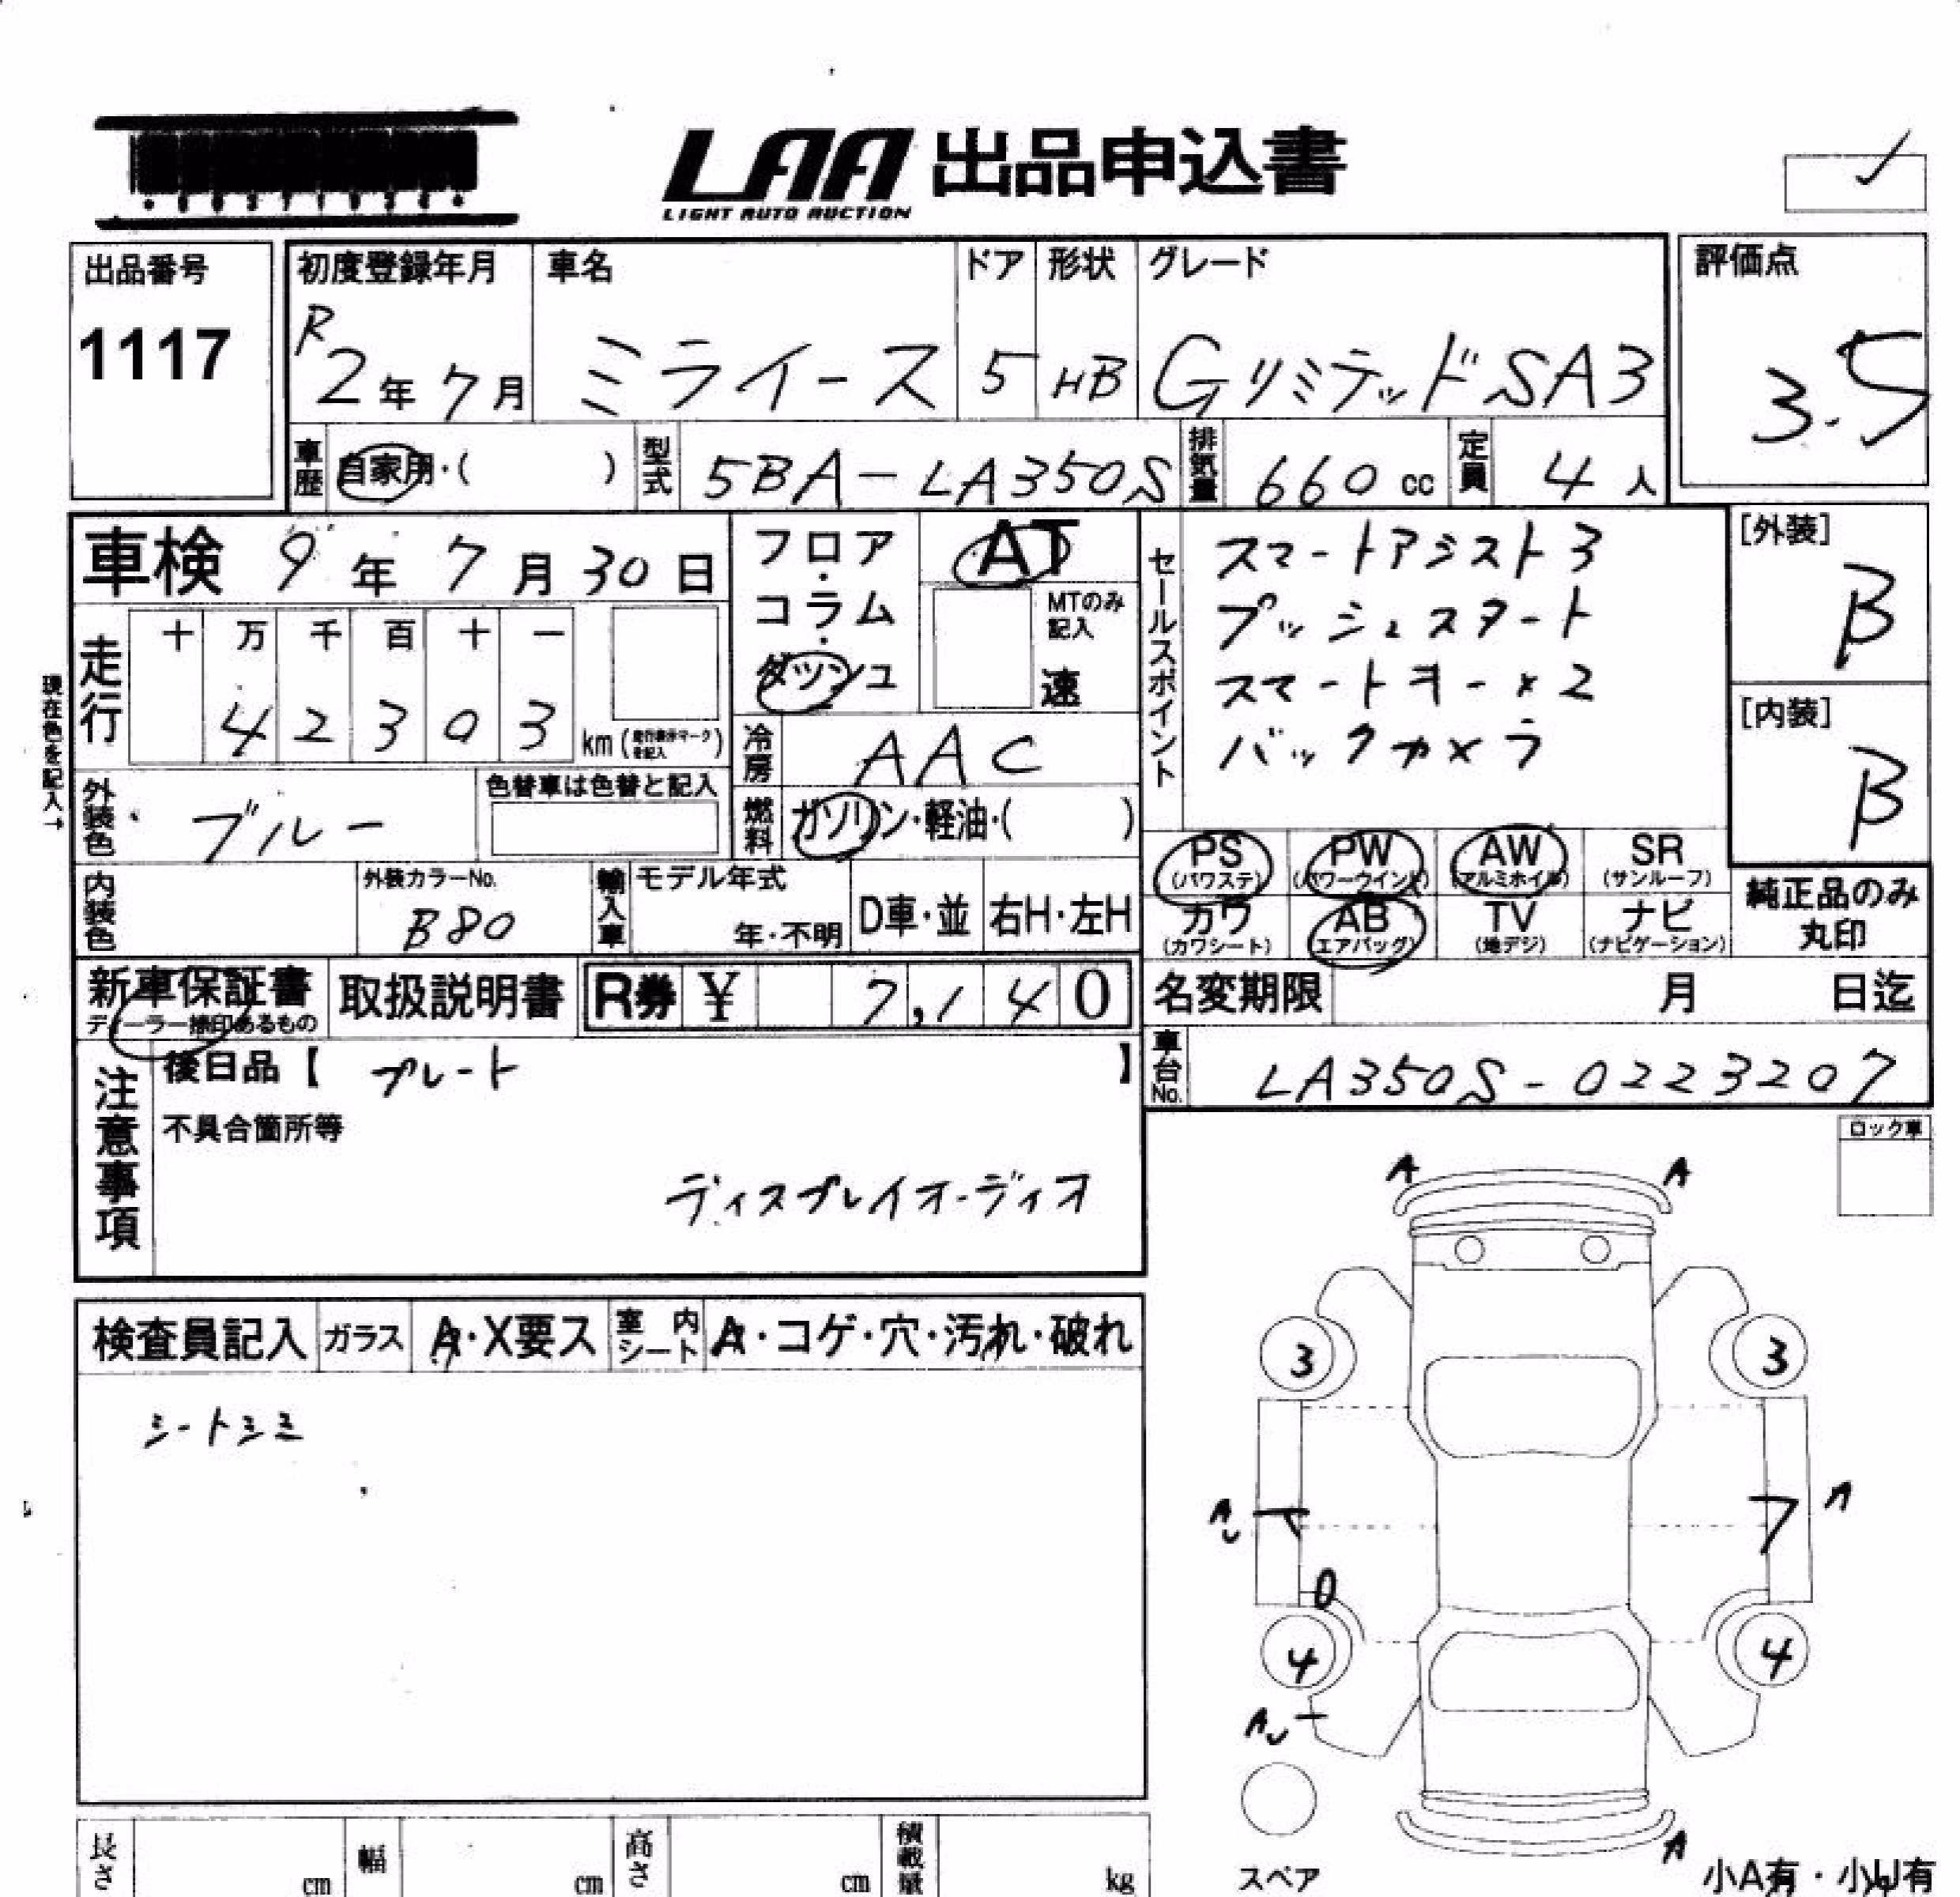 LAA 出品申込書
LIGHT AUTO AUCTION
出品番号
1117
初度登録年月
R
2年 7月
車名
ミライース
ドア
5
形状
HB
グレード
GリミテッドSA3
評価点
3.5
車歴 自家用・( )
型式 5BA-LA350S
排気量 660 cc
定員 4 人
車検 9年 7月 30日
走行
十 万 千 百 十 一
4 2 3 0 3 km (走行表示マークを記入)
現在色を記入→
外装色 ブルー
色替車は色替と記入
内装色
外装カラーNo.
B80
輸入車 モデル年式
年・不明
D車・並 右H・左H
フロア・コラム・ダッシュ
AT
MTのみ記入
速
冷房 AAC
燃料 ガソリン・軽油・( )
セールスポイント
スマートアシスト3
プッシュスタート
スマートキー×2
バックカメラ
[外装]
B
[内装]
B
PS (パワステ)
PW (パワーウインド)
AW (アルミホイル)
SR (サンルーフ)
カワ (カワシート)
AB (エアバッグ)
TV (地デジ)
ナビ (ナビゲーション)
純正品のみ
丸印
新車保証書
ディーラー捺印あるもの
取扱説明書
R券 ¥ 7,140
名変期限 月 日迄
車台No. LA350S-0223207
注意事項
後日品【 プレート 】
不具合箇所等
ディスプレイオーディオ
ロック車
検査員記入 ガラス A・X要ス 室内シート A・コゲ・穴・汚れ・破れ
シートシミ
A A
3 3
A
4 4
A
スペア
小A有・小U有
長さ cm 幅 cm 高さ cm 積載量 kg